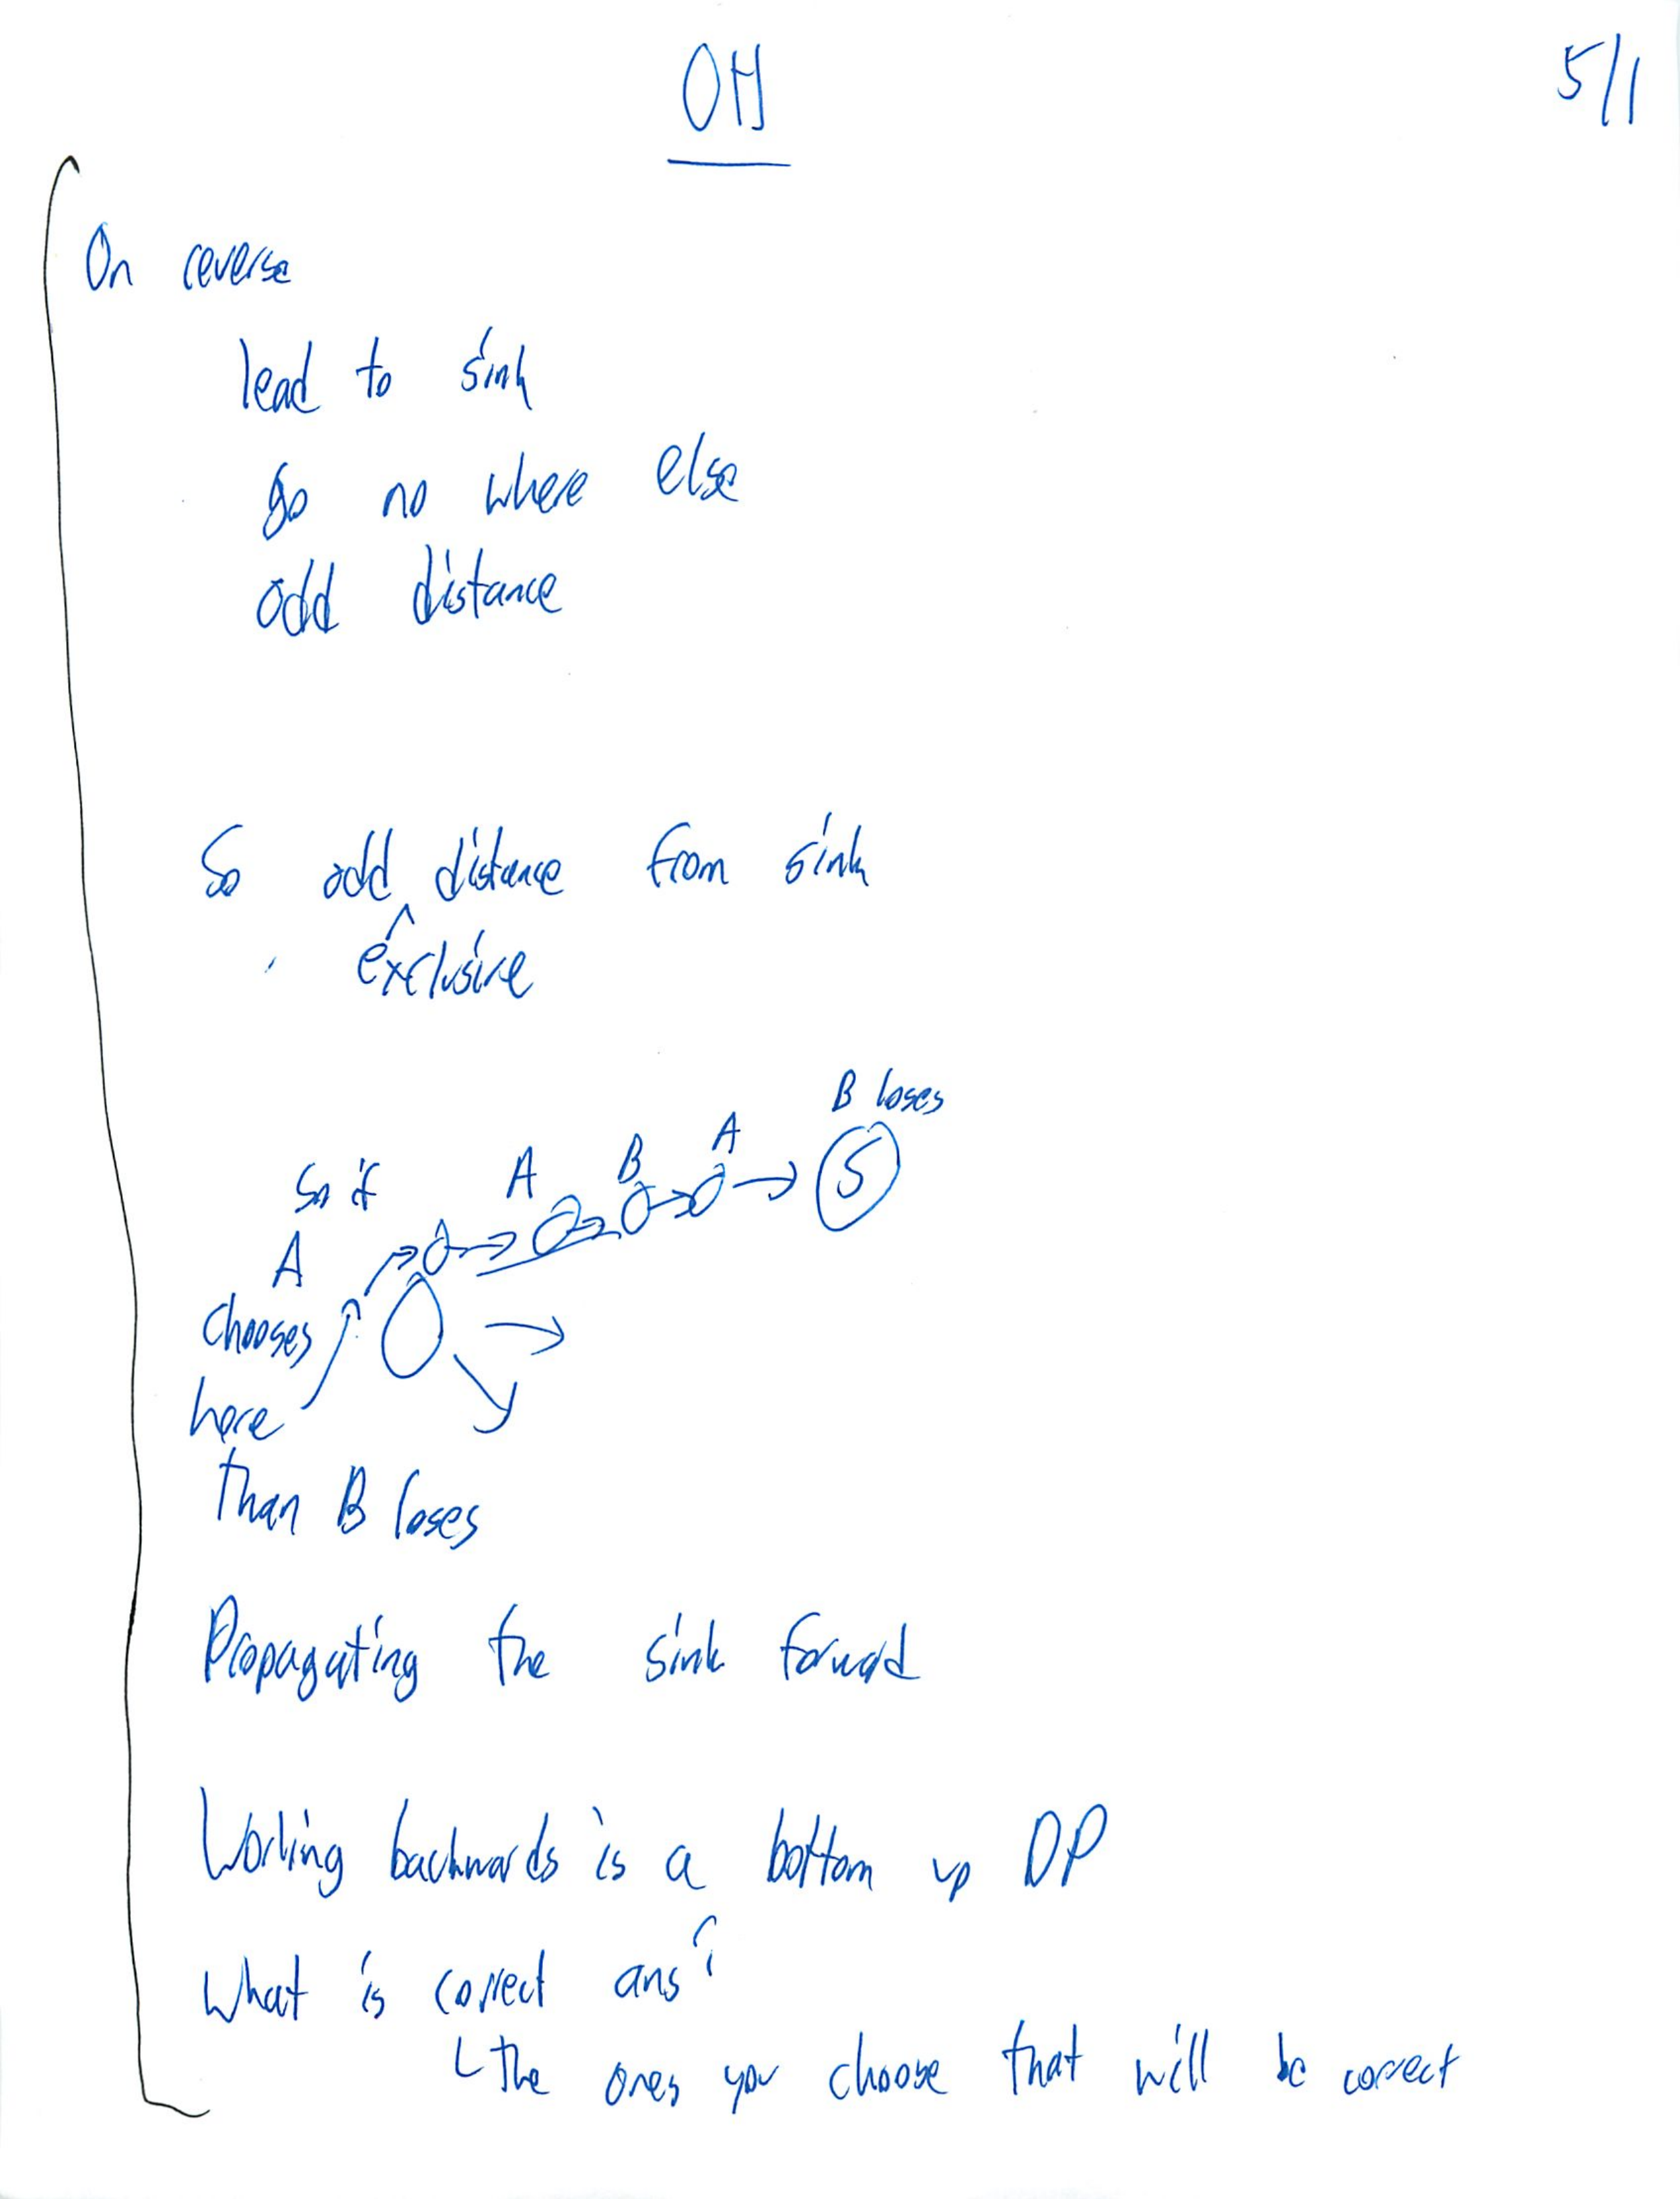 OH
5/1
On reverse
lead to sink
go no where else
odd distance
So odd distance from sink
^
exclusive
B loses
A B A
S
So if
A
chooses
here
than B loses
Propagating the sink forward
Working backwards is a bottom up DP
What is correct ans?
the ones you choose that will be correct